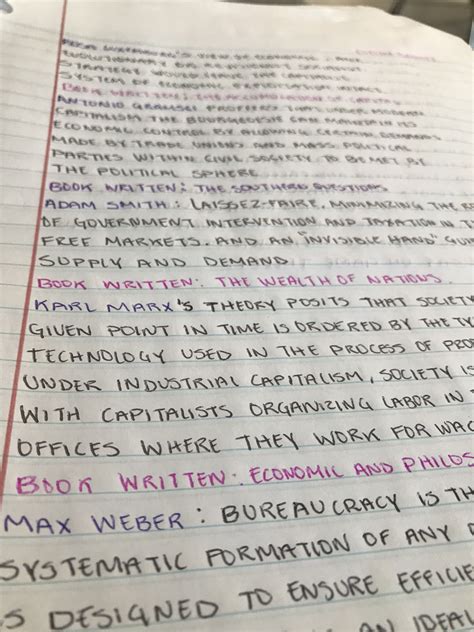 ROSA LUXEMBURG'S VIEW OF ECONOMY: THAT
EVOLUTIONARY OR REVISIONIST SOCIALIST
STRATEGY WOULD LEAVE THE CAPITALIST
SYSTEM OF ECONOMIC EXPLOITATION INTACT
BOOK WRITTEN: THE ACCUMULATION OF CAPITAL
ANTONIO GRAMSCI THAT UNDER MODERN
CAPITALISM THE BOURGEOISIE CAN MAINTAIN ITS
ECONOMIC CONTROL BY ALLOWING CERTAIN DEMANDS
MADE BY TRADE UNIONS AND MASS POLITICAL
PARTIES WITHIN CIVIL SOCIETY TO BE MET BY
THE POLITICAL SPHERE
BOOK WRITTEN: THE SOUTHERN QUESTIONS
ADAM SMITH: LAISSEZ-FAIRE, MINIMIZING THE
OF GOVERNMENT INTERVENTION AND TAXATION IN T
FREE MARKETS. AND AN "INVISIBLE HAND"
SUPPLY AND DEMAND
BOOK WRITTEN: THE WEALTH OF NATIONS
KARL MARX'S THEORY POSITS THAT SOCIET
GIVEN POINT IN TIME IS ORDERED BY THE TY
TECHNOLOGY USED IN THE PROCESS OF PRO
UNDER INDUSTRIAL CAPITALISM, SOCIETY IS
WITH CAPITALISTS ORGANIZING LABOR IN
OFFICES WHERE THEY WORK FOR WAG
BOOK WRITTEN: ECONOMIC AND PHILOS
MAX WEBER: BUREAUCRACY IS TH
SYSTEMATIC FORMATION OF ANY
S DESIGNED TO ENSURE EFFICIE
AN IDEAL